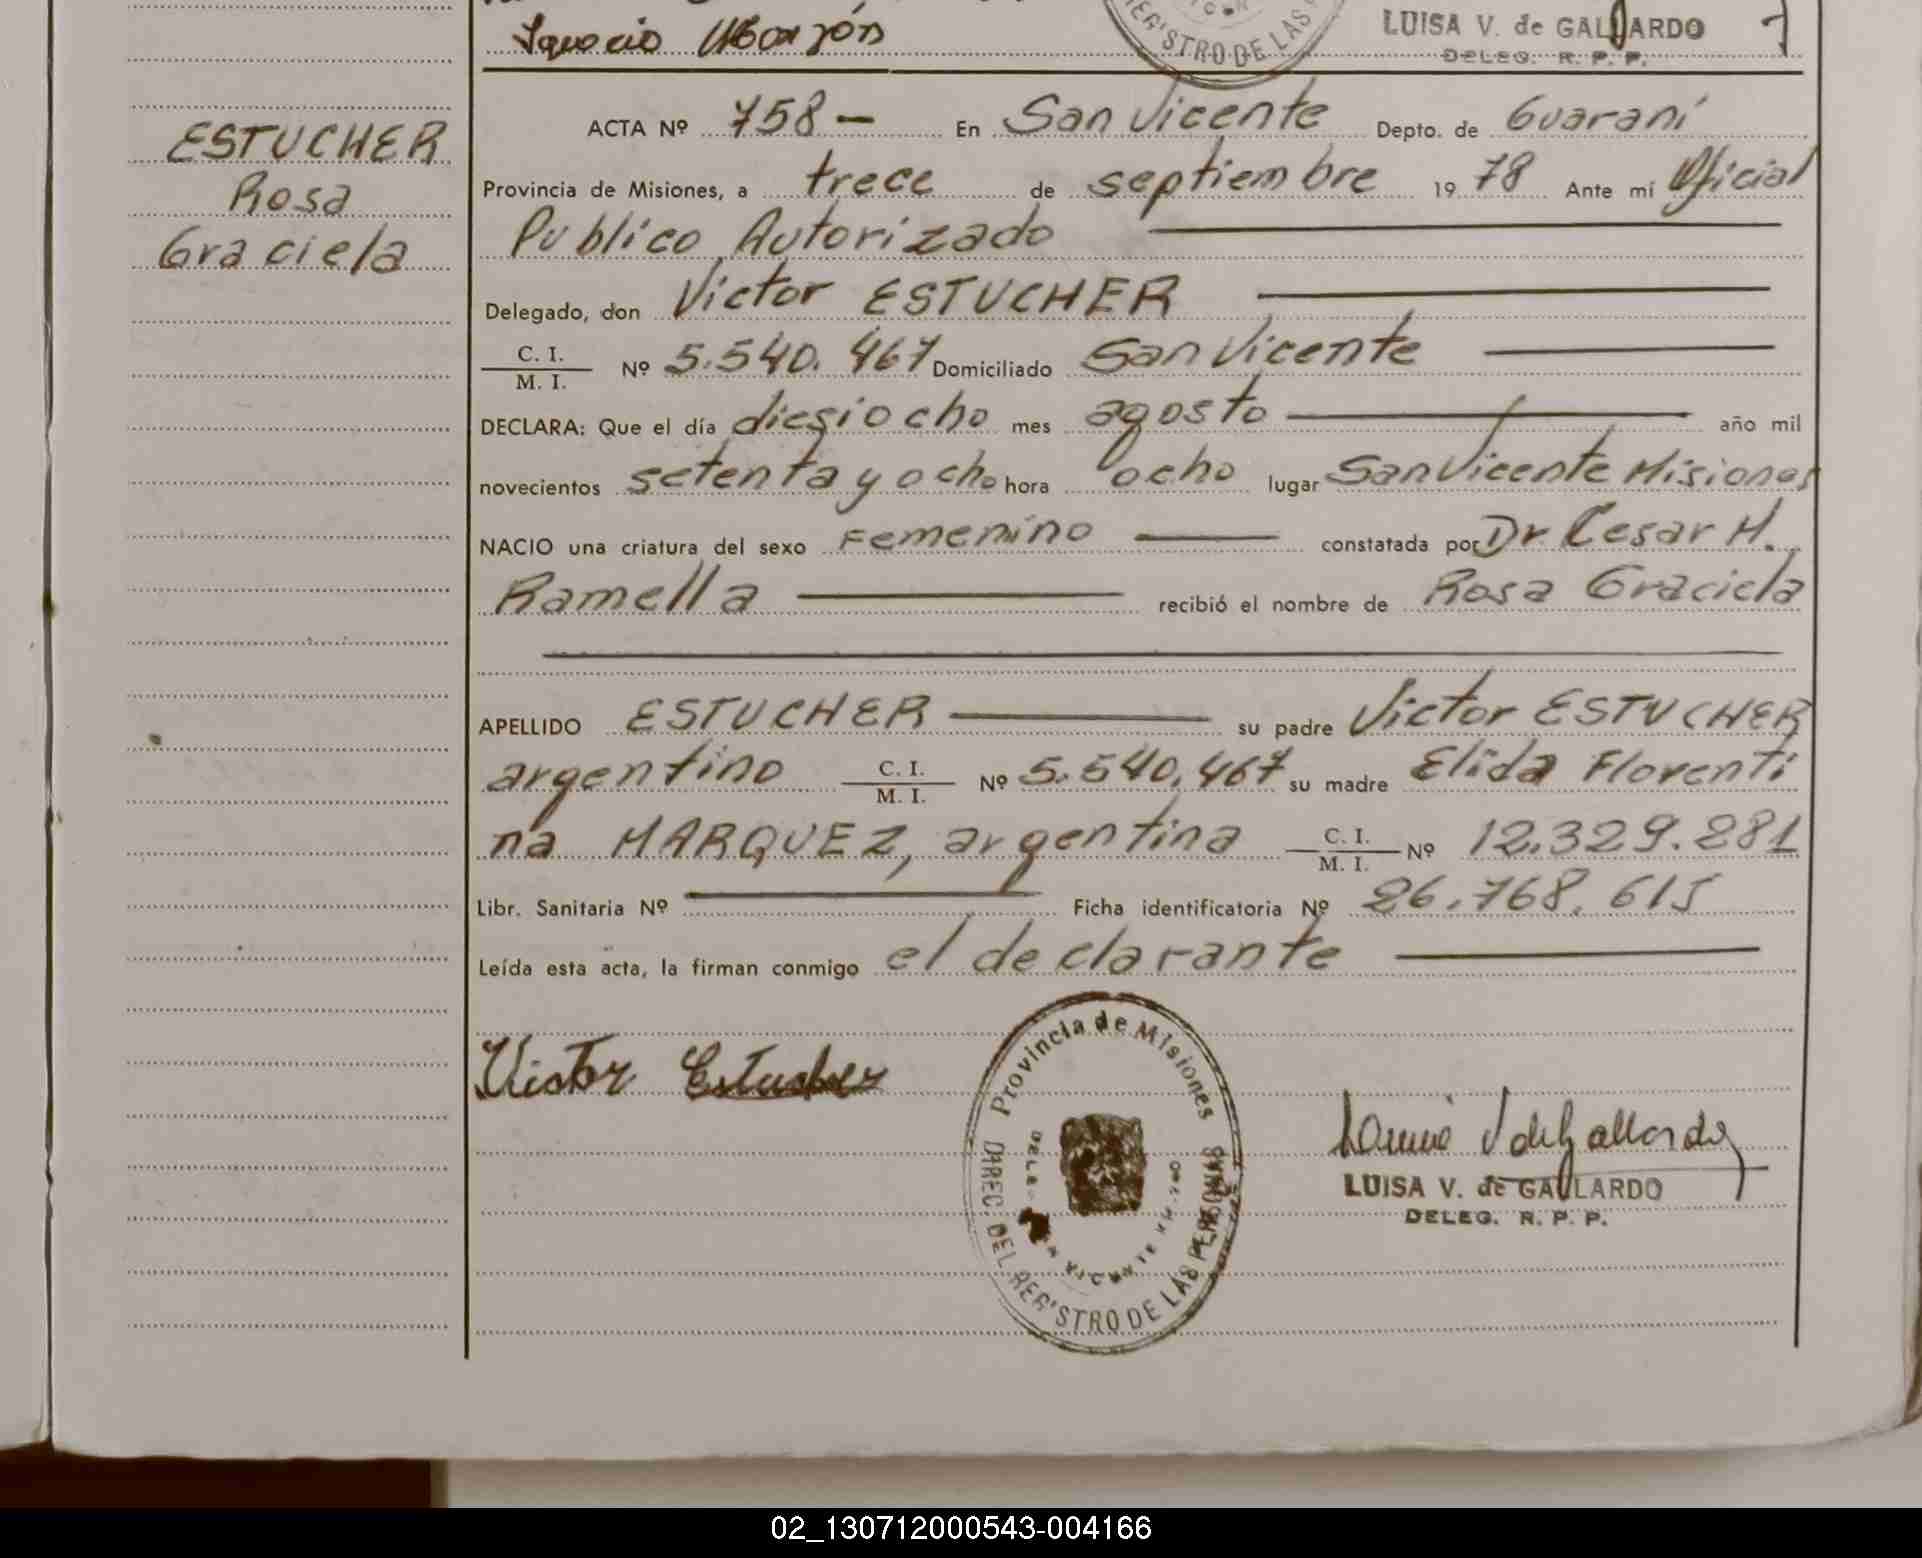 Ignacio
REG'STRO DE LAS
LUISA V. de GALLARDO
DELEG. R. P. P.
ESTUCHER
Rosa
Graciela
ACTA Nº 758 — En San Vicente Depto. de Guaraní
Provincia de Misiones, a trece de septiembre 19 78 Ante mí Oficial
Publico Autorizado
Delegado, don Victor ESTUCHER
C. I.
M. I. Nº 5.540.467 Domiciliado San Vicente
DECLARA: Que el día diesiocho mes agosto año mil
novecientos setenta y ocho hora ocho lugar San Vicente Misiones
NACIO una criatura del sexo Femenino constatada por Dr. Cesar H.
Ramella recibió el nombre de Rosa Graciela
APELLIDO ESTUCHER su padre Victor ESTUCHER
argentino C. I. M. I. Nº 5.540.467 su madre Elida Florenti
na MARQUEZ, argentina C. I. M. I. Nº 12.329.281
Libr. Sanitaria Nº Ficha identificatoria Nº 26.768.615
Leída esta acta, la firman conmigo el declarante
Victor Estucher
Provincia de Misiones
DIREC. DEL REG'STRO DE LAS PERSONAS
LUISA V. de GALLARDO
DELEG. R. P. P.
02_130712000543-004166